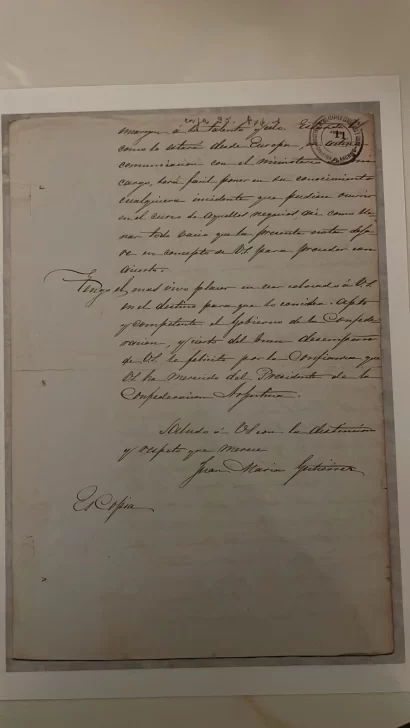 caja 29.
11
aunque á la talento y celo. Estando
como lo estará desde Europa, en
comunicacion con el ministerio
cargo, será facil poner en su conocimiento
cualquiera incidente que pudiera ocurrir
en el curso de aquellos negocios, así como lle-
nar todo vacio que la presente nota deja-
se en concepto de VS. para proceder con
acierto.
Tengo el mas vivo placer en ver colocado á VS.
en el destino para que lo considera apto
y competente el Gobierno de la Confede-
racion, y cierto del buen desempeño
de VS. le felicito por la Confianza que
VS ha merecido del Presidente de la
Confederacion Argentina.
Saludo á VS con la distincion
y respeto que merece
Juan Maria Gutierrez
Es Copia